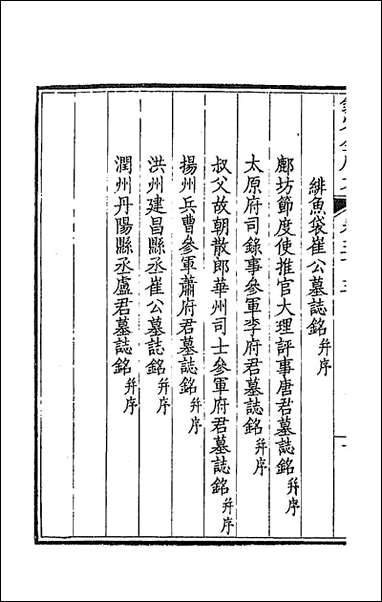 緋魚袋崔公墓誌銘并序
鄜坊節度使推官大理評事唐君墓誌銘并序
太原府司錄事參軍李府君墓誌銘并序
叔父故朝散郎華州司士參軍府君墓誌銘并序
揚州兵曹參軍蕭府君墓誌銘并序
洪州建昌縣丞崔公墓誌銘并序
潤州丹陽縣丞盧君墓誌銘并序